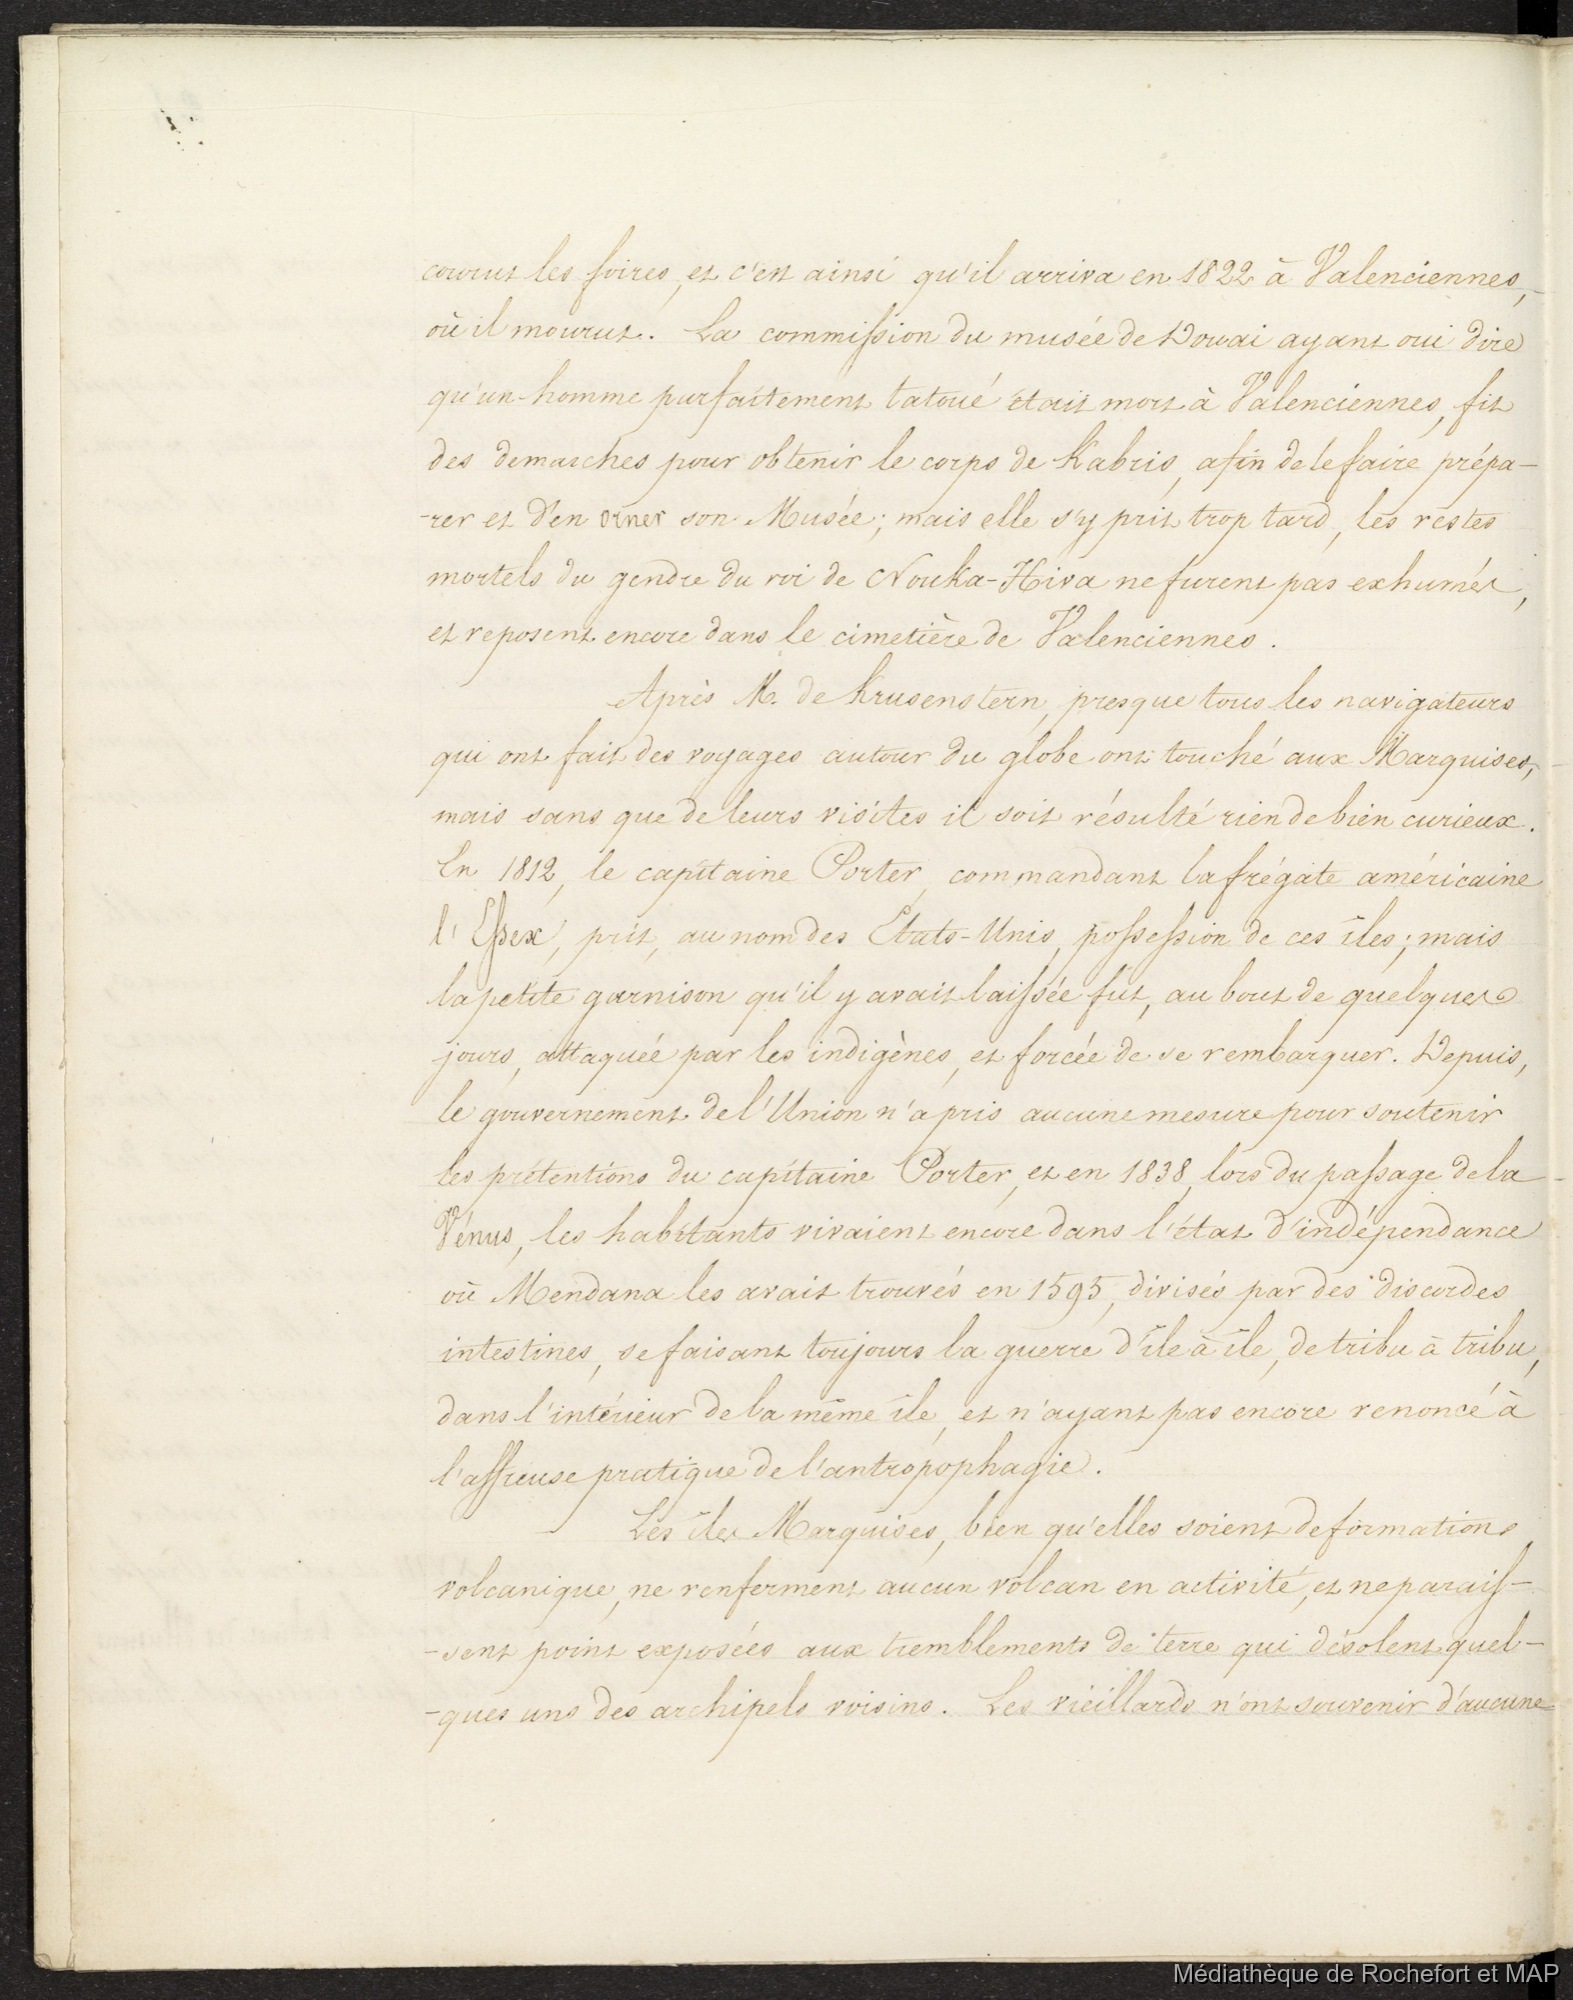 courut les foires, et c'est ainsi qu'il arriva en 1822 à Valenciennes,
où il mourut. La commission du musée de Douai ayant oui dire
qu'un homme parfaitement tatoué était mort à Valenciennes, fit
des demarches pour obtenir le corps de Kabris, afin de le faire prépa-
-rer et d'en orner son Musée; mais elle s'y prit trop tard, les restes
mortels du gendre du roi de Nouka-Hiva ne furent pas exhumés,
et reposent encore dans le cimetière de Valenciennes.
Après M. de Krusenstern, presque tous les navigateurs
qui ont fait des voyages autour du globe ont touché aux Marquises,
mais sans que de leurs visites il soit résulté rien de bien curieux.
En 1812, le capitaine Porter, commandant la frégate américaine
l'Essex, prit, au nom des Etats-Unis, possession de ces îles; mais
la petite garnison qu'il y avait laissée fut, au bout de quelques
jours, attaquée par les indigènes, et forcée de se rembarquer. Depuis,
le gouvernement de l'Union n'a pris aucune mesure pour soutenir
les prétentions du capitaine Porter, et en 1838, lors du passage de la
Vénus, les habitants vivaient encore dans l'état d'indépendance
où Mendana les avait trouvés en 1595, divisés par des discordes
intestines, se faisant toujours la guerre d'île à île, de tribu à tribu,
dans l'intérieur de la même île, et n'ayant pas encore renoncé à
l'affreuse pratique de l'antropophagie.
Les îles Marquises, bien qu'elles soient de formations
volcanique, ne renferment aucun volcan en activité, et ne parais-
-sent point exposées aux tremblements de terre qui désolent quel-
-ques uns des archipels voisins. Les vieillards n'ont souvenir d'aucune
Médiathèque de Rochefort et MAP